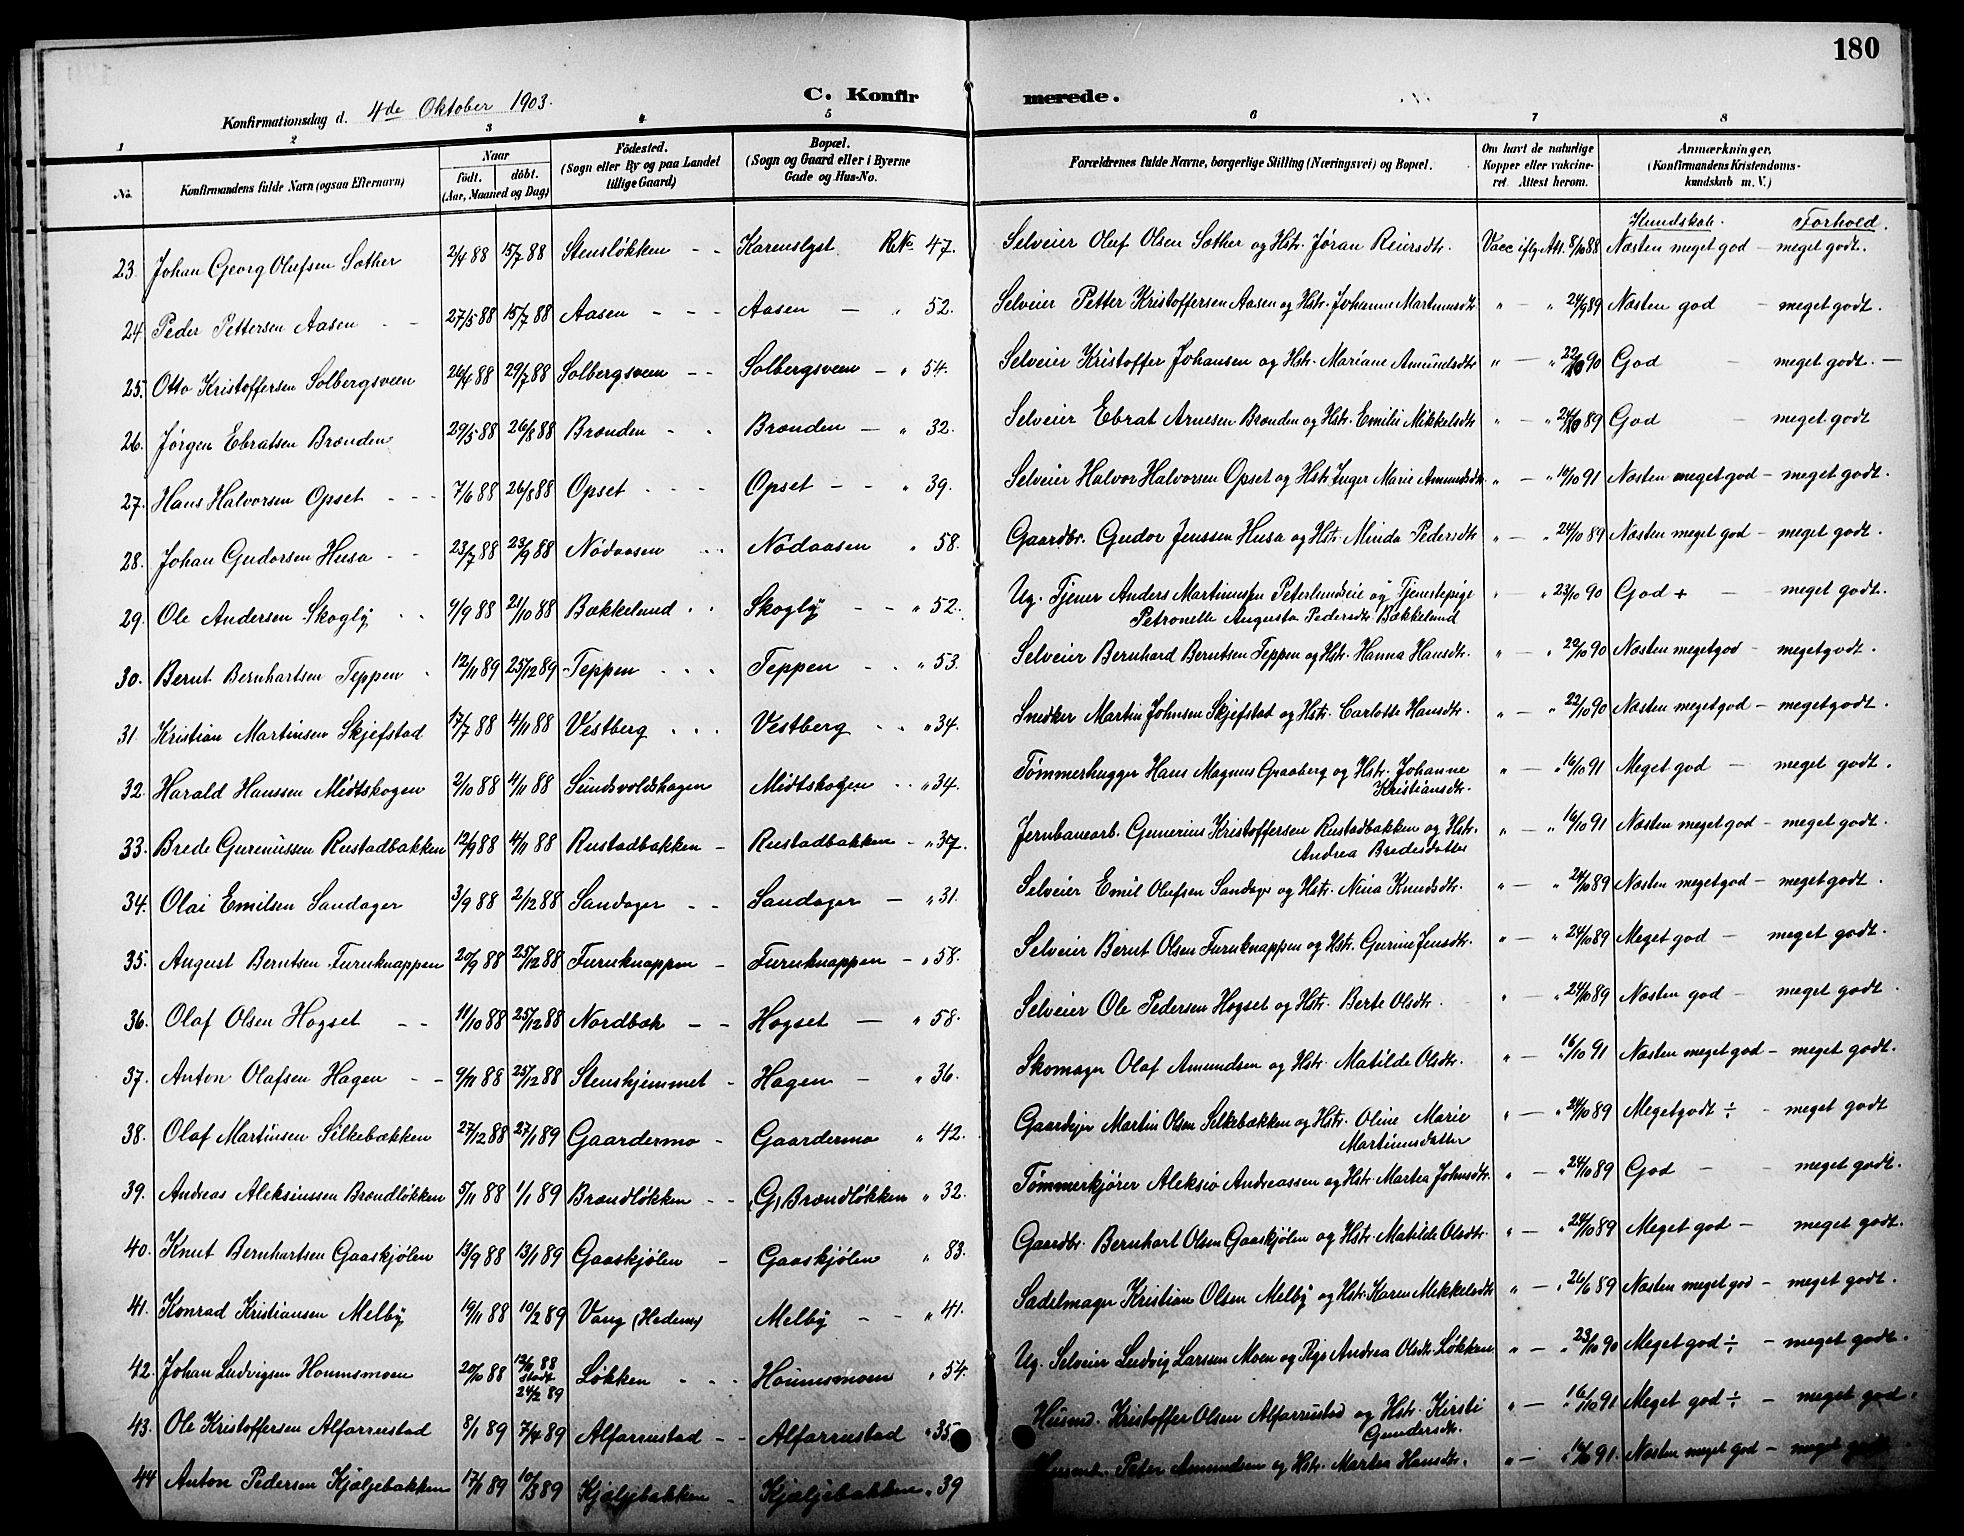 180
Konfirmationsdag d. 4de Oktober 1903.
C. Konfirmerede.
1 2 3 4 5 6 7 8
No. Konfirmandens fulde Navn (ogsaa Efternavn) Naar født. døbt. (Aar, Maaned og Dag) Fødested. (Sogn eller By og paa Landet tillige Gaard) Bopæl. (Sogn og Gaard eller i Byerne Gade og Hus-No. Forældrenes fulde Navne, borgerlige Stilling (Næringsvei) og Bopæl. Om havt de naturlige Kopper eller vakcineret. Attest herom. Anmærkninger. (Konfirmandens Kristendomskundskab m. V.)
Kundskab. Forhold.
23. Johan Georg Olufsen Sæther 2/4 88 15/7 88 Stensløkken - - Karenslyst R.No. 47. Selveier Oluf Olsen Sæther og Hstr. Jøran Reiersdtr. Vacc iflg Att. 8/10 88 Næsten meget god - meget godt.
24. Peder Pettersen Aasen - - 27/5 88 15/7 88 Aasen - - - Aasen — " 52. Selveier Petter Kristoffersen Aasen og Hstr. Johanne Martinusdtr " — " 24/9 89 Næsten god - meget godt.
25. Otto Kristoffersen Solbergsveen 26/4 88 29/7 88 Solbergsveen - - Solbergsveen - " 54. Selveier Kristoffer Johansen og Hstr. Mariane Amundsdtr " — " 22/10 90 God - meget godt. —
26. Jørgen Ebratsen Brænden 29/5 88 26/8 88 Brænden - - Brænden — " 32. Selveier Ebrat Arnesen Brænden og Hstr. Emilie Mikkelsdtr " — " 24/10 89 God - meget godt
27. Hans Halvorsen Opset - - - 7/6 88 26/8 88 Opset - - - Opset - - " 39. Selveier Halvor Halvorsen Opset og Hstr Inger Marie Amundsdtr. " — " 16/10 91 Næsten meget god - meget godt.
28. Johan Gudorsen Husa - - 23/7 88 23/9 88 Nødaasen - - Nødaasen " 58. Gaardbr. Gudor Jenssen Husa og Hstr. Minda Pedersdtr " — " 24/10 89 Næsten meget god - meget godt.
29. Ole Andersen Skogly - - 9/9 88 21/10 88 Bækkelund - - Skogly - - " 52. Ug. Tjener Anders Martinusen Peterlundseie og Tjenestepige Petronelle Augusta Pedersdtr Bækkelund " — " 23/10 90 God + - meget godt.
30. Bernt Bernhartsen Teppen 12/11 89 25/12 89 Teppen - - - Teppen - - " 53. Selveier Bernhard Berntsen Teppen og Hstr. Hanna Hansdtr. " — " 22/10 90 Næsten meget god - meget godt.
31. Kristian Martinsen Skjefstad 17/7 88 4/11 88 Vestberg - - - Vestberg - - " 34. Snedker Martin Johnsen Skjefstad og Hstr. Carlotte Hansdtr. " — " 22/10 90 Næsten meget god - meget godt.
32. Harald Hanssen Midtskogen 2/10 88 4/11 88 Sundsvoldshagen Midtskogen - - " 34. Tømmerhugger Hans Magnus Graaberg og Hstr. Johanne Kristiansdtr. " — " 16/10 91 Meget god - meget godt.
33. Brede Guneriussen Rustadbakken 12/9 88 4/11 88 Rustadbakken - Rustadbakken - " 37. Jernbanearb. Gunerius Kristoffersen Rustadbakken og Hstr. Andrea Bredesdatter " — " 16/10 91 Næsten meget god - meget godt.
34. Olai Emilsen Sandager 3/9 88 2/12 88 Sandager - - Sandager - " 31. Selveier Emil Olufsen Sandager og Hstr. Nina Knudsdtr. " — " 24/10 89 Næsten meget god - meget godt.
35. August Berntsen Furuknappen 20/9 88 25/12 88 Furuknappen - Furuknappen - " 58. Selveier Bernt Olsen Furuknappen og Hstr. Gurine Jensdtr. " — " 24/10 89 Meget god - meget godt.
36. Olaf Olsen Hogset - - 11/10 88 25/12 88 Nordbæk - - Hogset — " 58. Selveier Ole Pedersen Hogset og Hstr. Berte Olsdtr. " — " 24/10 89 Næsten god - meget godt.
37. Anton Olafsen Hagen - - 9/11 88 25/12 88 Stenshjemmet - Hagen — " 36. Skomager Olaf Amundsen og Hstr. Matilde Olsdtr. " — " 16/10 91 Næsten meget god - meget godt.
38. Olaf Martinsen Silkebækken 27/12 88 27/1 89 Gaardermo - Gaardermo " 42. Gaardejer Martin Olsen Silkebækken og Hstr. Oline Marie Martinusdatter " — " 24/10 89 Meget godt ÷ - meget godt
39. Andreas Aleksiussen Brændløkken 5/11 88 1/1 89 Brændløkken - - (G) Brændløkken " 32. Tømmerkjører Aleksiø Andreassen og Hstr Martea Johnsdtr. " — " 24/10 89 God - - meget godt.
40. Knut Bernhartsen Gaaskjølen 13/9 88 13/1 89 Gaaskjølen - Gaaskjølen " 83. Gaardbr. Bernhart Olsen Gaaskjølen og Hstr. Matilde Olsdtr. " — " 24/10 89 Meget god - meget godt.
41. Konrad Kristiansen Melby 19/11 88 10/2 89 Vang (Hedem) Melby - - " 41. Sadelmager Kristian Olsen Melby og Hstr Karen Mikkelsdtr " — " 26/6 89 Næsten meget god - meget godt.
42. Johan Ludvigsen Hounsmoen 20/10 88 12/11 88 stadf. 24/2 89 Løkken - - - Hounsmoen " 54. Ug. Selveier Ludvig Larssen Moen og Pige Andrea Olsdtr. Løkken " — " 23/10 90 Meget god ÷ - meget godt.
43. Ole Kristoffersen Alfarrustad 8/1 89 7/4 89 Alfarrustad - - Alfarrustad " 35 Husmd. Kristoffer Olsen Alfarrustad og Hstr. Kirsti Gundersdtr. " — " 16/10 91 Meget god ÷ - meget god.
44 Anton Pedersen Kjæljebakken 17/1 89 10/3 89 Kjæljebakken - Kjæljebakken " 39 Husmd. Peter Amundsen og Hstr. Martea Hansdtr. " — " 91. Næsten meget god - meget